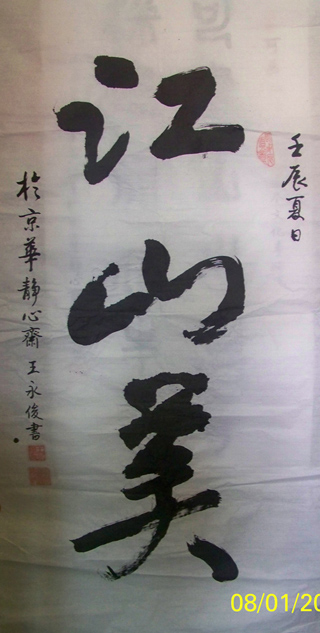 壬辰夏日
江山美
於京華靜心齋王永俊書
08/01/20